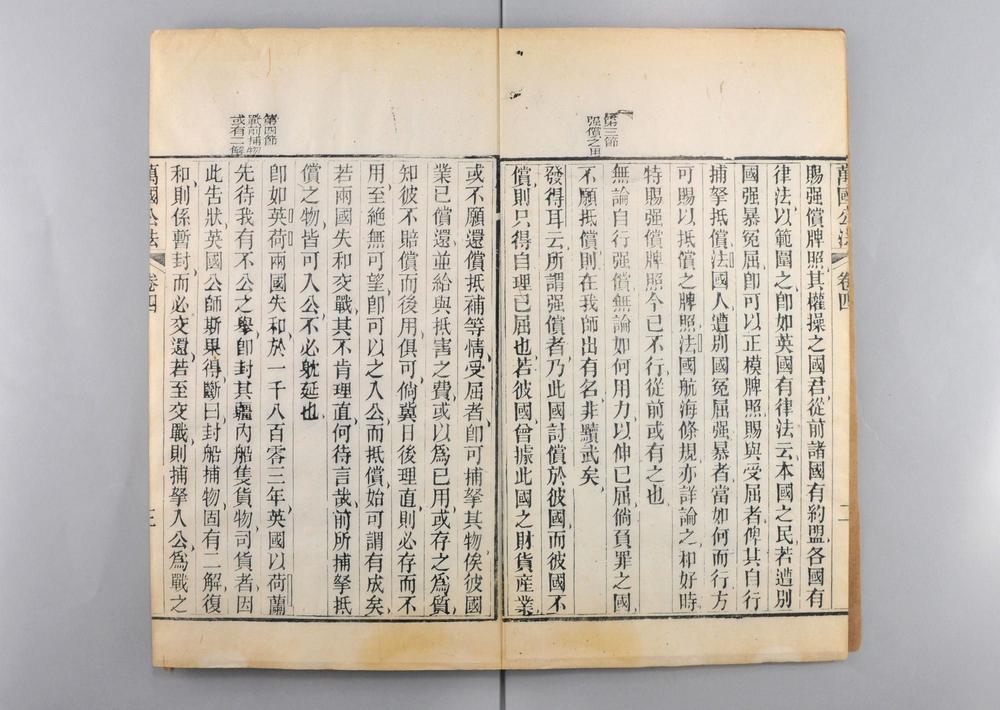 萬國公法 卷四 二
賜强償牌照其權操之國君從前諸國有約盟各國有
律法以範圍之卽如英國有律法云本國之民若遭別
國强暴冤屈卽可以正模牌照賜與受屈者俾其自行
捕拏抵償法國人遭別國冤屈强暴者當如何而行方
可賜以抵償之牌照法國航海條規亦詳論之和好時
特賜强償牌照今已不行從前或有之也
第三節
强償之用
無論自行强償無論如何用力以伸已屈倘負罪之國
不願抵償則在我師出有名非黷武矣
發得耳云所謂强償者乃此國討償於彼國而彼國不
償則只得自理已屈也若彼國曾據此國之財貨産業
或不願還償抵補等情受屈者卽可捕拏其物俟彼國
業已償還並給與抵害之費或以爲已用或存之爲質
知彼不賠償而後用俱可倘冀日後理直則必存而不
用至絶無可望卽可以之入公而抵償始可謂有成矣
若兩國失和交戰其不肯理直何待言哉前所捕拏抵
償之物皆可入公不必躭延也
第四節
戰前捕物
或有二解
卽如英荷兩國失和於一千八百零三年英國以荷蘭
先待我有不公之舉卽封其疆內船隻貨物司貨者因
此吿狀英國公師斯果得斷曰封船捕物固有二解復
和則係暫封而必交還若至交戰則捕拏入公爲戰之
萬國公法 卷四 三